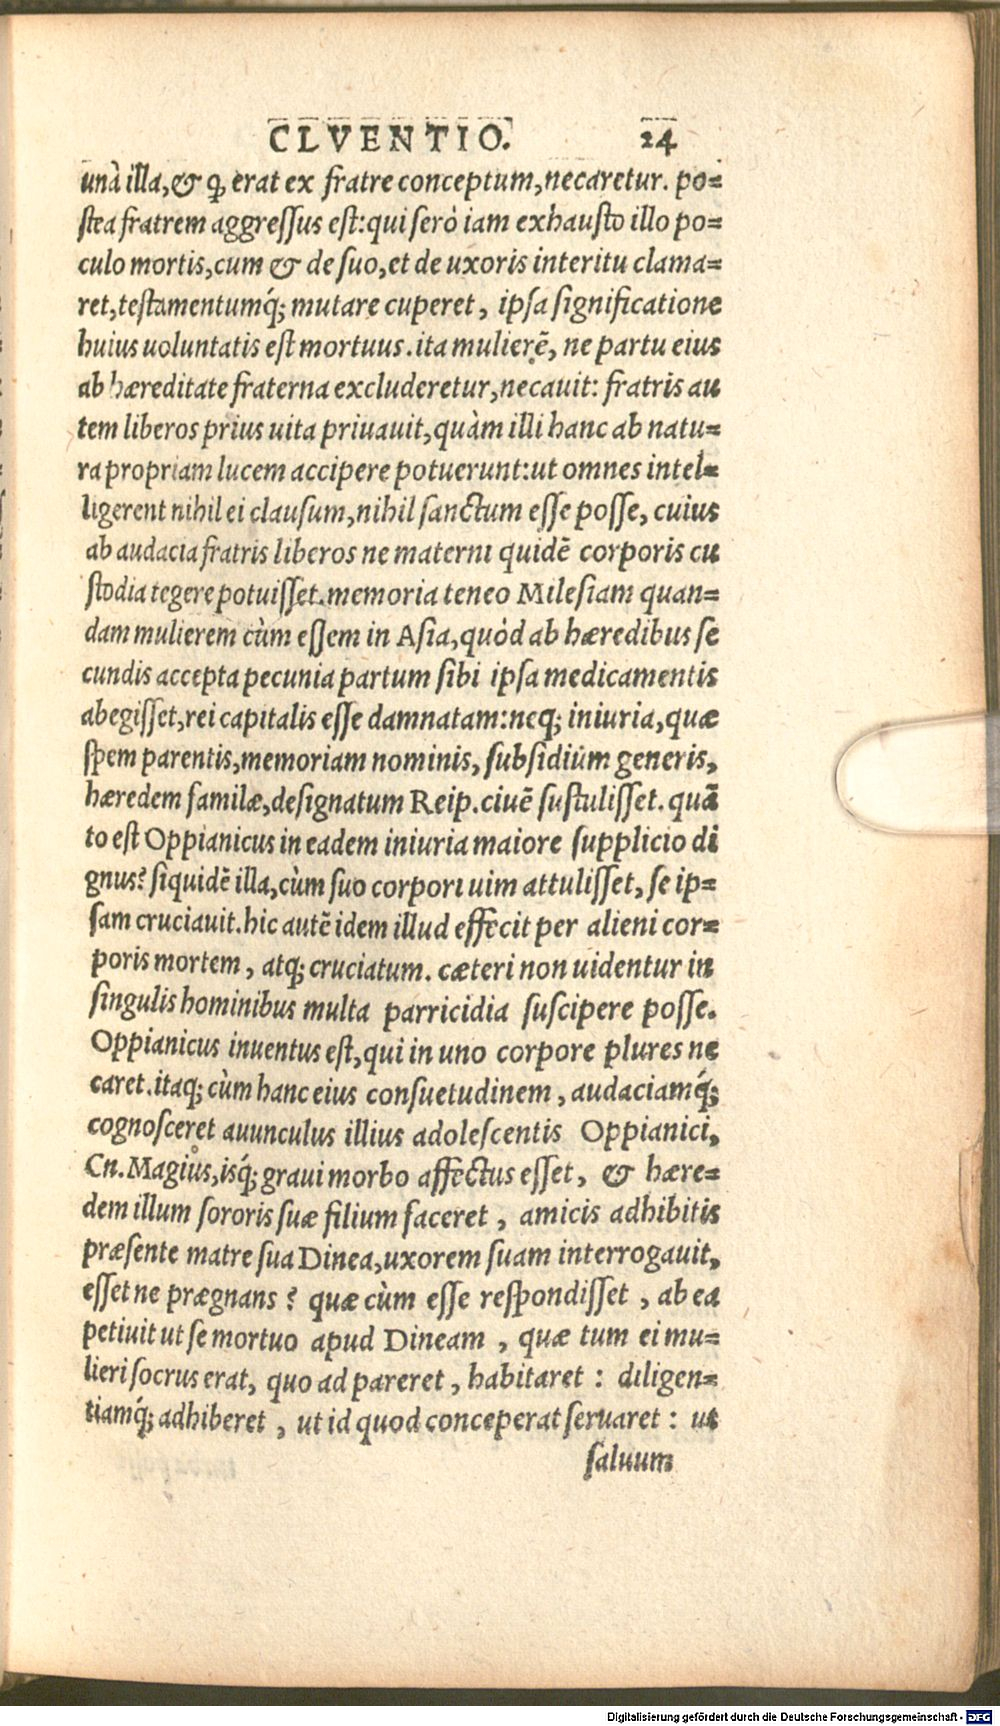 CLVENTIO. 24
unà illa, & ꝙ erat ex fratre conceptum, necaretur. po=
stea fratrem aggressus est: qui serò iam exhausto illo po=
culo mortis, cum & de suo, et de uxoris interitu clama=
ret, testamentumq́; mutare cuperet, ipsa significatione
huius uoluntatis est mortuus. ita mulierẽ, ne partu eius
ab hæreditate fraterna excluderetur, necauit: fratris au
tem liberos prius uita priuauit, quàm illi hanc ab natu=
ra propriam lucem accipere potuerunt: ut omnes intel=
ligerent nihil ei clausum, nihil sanctum esse posse, cuius
ab audacia fratris liberos ne materni quidẽ corporis cu
stodia tegere potuisset. memoria teneo Milesiam quan=
dam mulierem cùm essem in Asia, quòd ab hæredibus se
cundis accepta pecunia partum sibi ipsa medicamentis
abegisset, rei capitalis esse damnatam: neq; iniuria, quæ
spem parentis, memoriam nominis, subsidium generis,
hæredem familæ, designatum Reip. ciuẽ sustulisset. quã
to est Oppianicus in eadem iniuria maiore supplicio di
gnus? siquidẽ illa, cùm suo corpori uim attulisset, se ip=
sam cruciauit. hic autẽ idem illud effecit per alieni cor=
poris mortem, atq; cruciatum. cæteri non uidentur in
singulis hominibus multa parricidia suscipere posse.
Oppianicus inuentus est, qui in uno corpore plures ne
caret. itaq; cùm hanc eius consuetudinem, audaciamq́;
cognosceret auunculus illius adolescentis Oppianici,
Cn. Magius, isq́; graui morbo affectus esset, & hære=
dem illum sororis suæ filium faceret, amicis adhibitis
præsente matre sua Dinea, uxorem suam interrogauit,
esset ne prægnans? quæ cùm esse respondisset, ab ea
petiuit ut se mortuo apud Dineam, quæ tum ei mu=
lieri socrus erat, quo ad pareret, habitaret: diligen=
tiamq́; adhiberet, ut id quod conceperat seruaret: ut
saluum
Digitalisierung gefördert durch die Deutsche Forschungsgemeinschaft - DFG